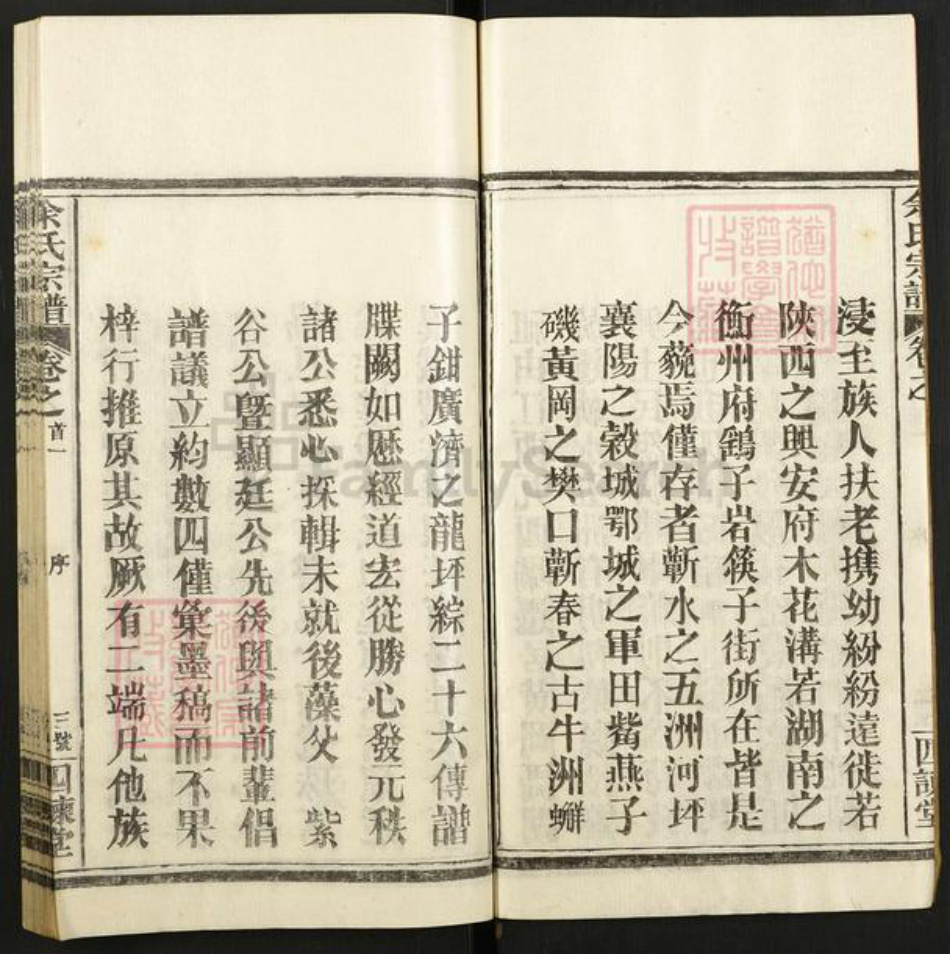 余氏宗譜 卷之
四諫堂
浸至族人扶老携幼紛紛遠徙若
陝西之興安府木花溝若湖南之
衡州府鷂子岩筷子街所在皆是
今藐焉僅存者蘄水之五洲河坪
襄陽之穀城鄂城之軍田觜燕子
磯黃岡之樊口蘄春之古牛洲蠏
子鉗廣濟之龍坪綜二十六傳譜
牒闕如歷經道宏從勝心發元秩
諸公悉心採輯未就後藻父 紫
谷公暨顯廷公先後與諸前輩倡
譜議立約數四僅彙墨稿而不果
梓行推原其故厥有二端凡他族
余氏宗譜 卷之首一 序 三號 四諫堂
FamilySearch